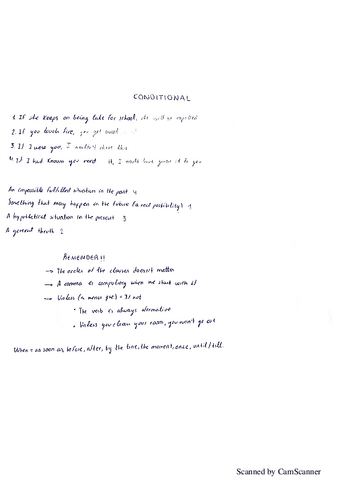 CONDITIONAL
1. If she keeps on being late for school, she will be expelled
2. If you touch fire, you get
3. If I were you, I wouldn't
4. If I had known you need it, I would have given it to you
An impossible fulfilled situation in the past 4
Something that may happen in the future (a real possibility) 1
A hypothetical situation in the present 3
A general thruth 2
REMEMBER!!
→ The order of the clauses doesn't matter
→ A comma is compulsory when we start with if
→ Unless (a menos que) = If not
• The verb is always afirmative
• Unless you clean your room, you won't go out
When = as soon as, before, after, by the time, the moment, once, until / till.
Scanned by CamScanner